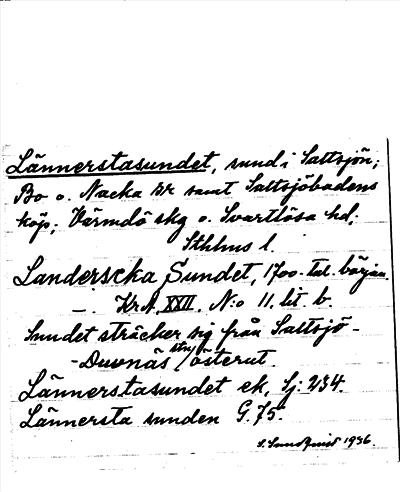 Lännerstasundet, sund i Saltsjön;
Bo o. Nacka sk samt Saltsjöbadens
köp; Värmdö skg o. Svartlösa hd;
Sthlms l.
Landerscka Sundet, 1700-tal. början
–. KrA XXII. N:o 11. lit. b.
Sundet sträcker sig från Saltsjö-
-Duvnäs österut.
Lännerstasundet ek, Sj: 234.
Lännersta sunden G. 75.
S. Sundqvist 1936.